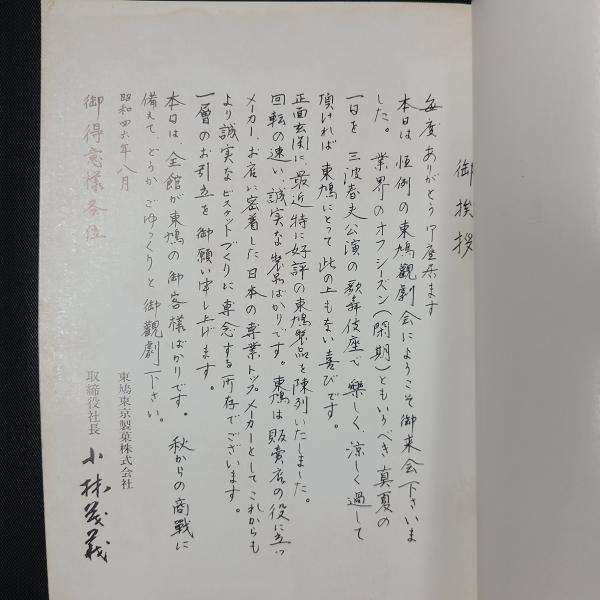 御挨拶
毎度ありがとう御座居ます
本日は恒例の東鳩観劇会にようこそ御来会下さいま
した。業界のオフシーズン(閑期)ともいうべき真夏の
一日を三波春夫公演の歌舞伎座で楽しく、涼しく過して
頂ければ東鳩にとって此の上もない喜びです。
正面玄関に、最近特に好評の東鳩製品を陳列いたしました。
回転の速い、誠実な製品ばかりです。東鳩は販売店の役に立つ
メーカー、お店に密着した日本の専業トップメーカーとしてこれからも
より誠実なビスケットづくりに専念する所存でございます。
一層のお引立を御願い申し上げます。
本日は、全館が東鳩の御客様ばかりです。秋からの商戦に
備えて、どうかごゆっくりと御観劇下さい。
昭和四六年八月
御得意様各位
東鳩東京製菓株式会社
取締役社長 小林茂義